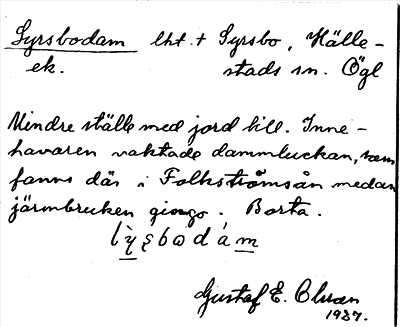 Syrsbodam lht. t Syrsbo, Hälle-
ek. stads sn. Ögl
Mindre ställe med jord till. Inne-
havaren vaktade dammluckan, som
fanns där i Folkströmsån medan
järnbruken gingo. Borta.
Gustaf E. Olsson
1927.